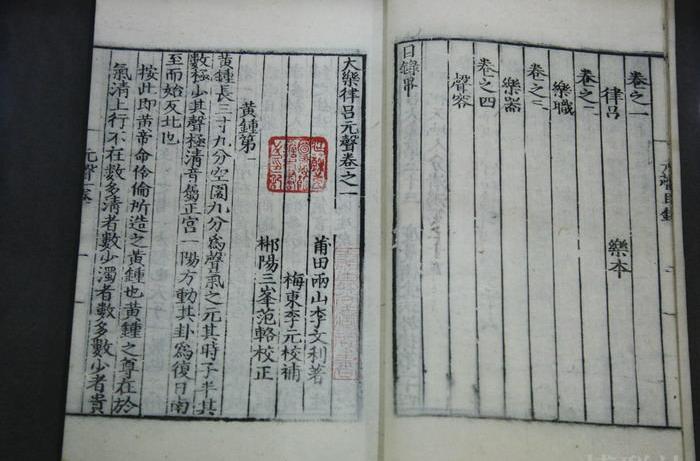 卷之一
律呂　　　　樂本
卷之二
樂職
卷之三
樂器
卷之四
聲容
目錄畢
大樂律呂元聲卷之一
莆田兩山李文利著
梅東李元校補
郴陽三峯范輅校正
黃鍾第一
黃鍾長三寸九分空圍九分為聲氣之元其時子半其
數極少其聲極清音屬正宮一陽方動其卦為復日南
至而始反北也
按此即黃帝命伶倫所造之黃鍾也黃鍾之尊在於
氣清上行不在數多清者數少濁者數多數少者貴